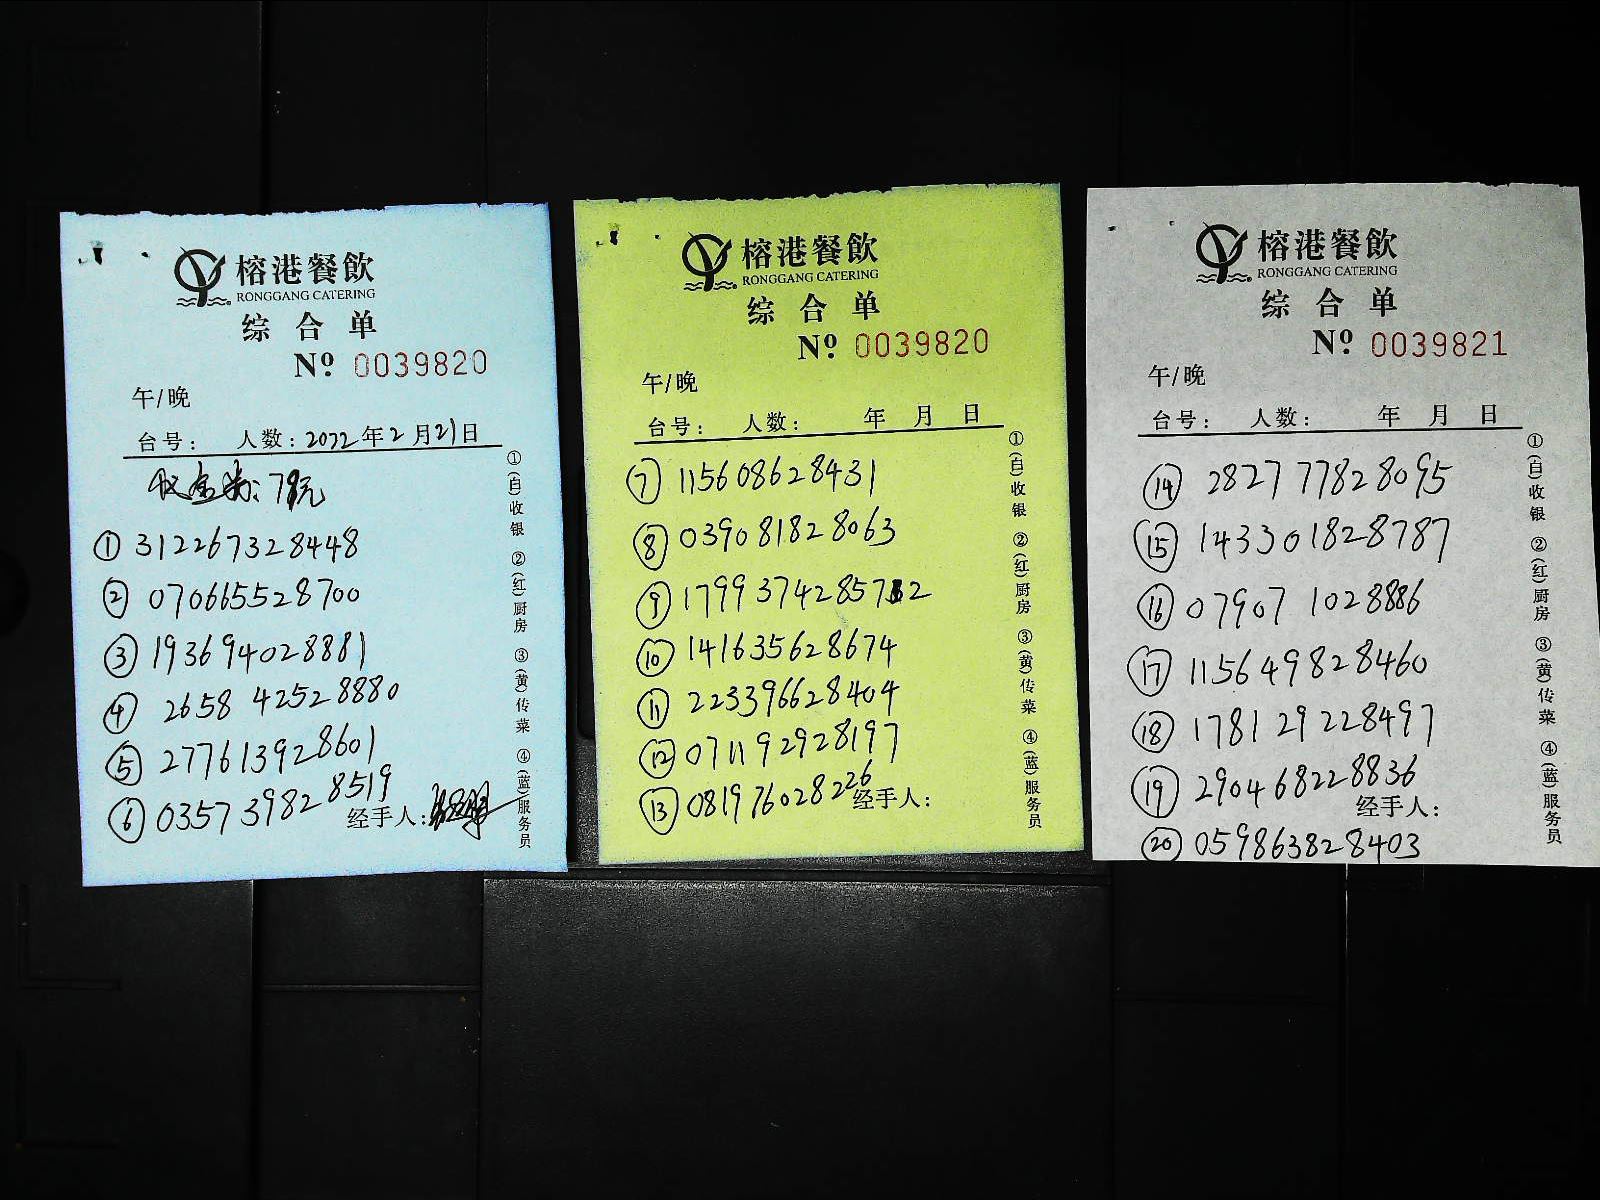 榕港餐飲
RONGGANG CATERING
综合单
Nº 0039820
午/晚
台号: 人数: 2022年2月21日
79元
① 312267328448
② 070665528700
③ 193694028881
④ 2658 42528880
⑤ 277613928601
⑥ 035739828519
经手人:
①(白)收银 ②(红)厨房 ③(黄)传菜 ④(蓝)服务员
榕港餐飲
RONGGANG CATERING
综合单
Nº 0039820
午/晚
台号: 人数: 年 月 日
⑦ 115608628431
⑧ 039081828063
⑨ 179937428572
⑩ 141635628674
⑪ 223396628404
⑫ 071192928197
⑬ 081976028226
经手人:
①(白)收银 ②(红)厨房 ③(黄)传菜 ④(蓝)服务员
榕港餐飲
RONGGANG CATERING
综合单
Nº 0039821
午/晚
台号: 人数: 年 月 日
⑭ 282777828095
⑮ 143301828787
⑯ 07907 1028886
⑰ 115649828460
⑱ 178129228497
⑲ 290468228836
经手人:
⑳ 059863828403
①(白)收银 ②(红)厨房 ③(黄)传菜 ④(蓝)服务员